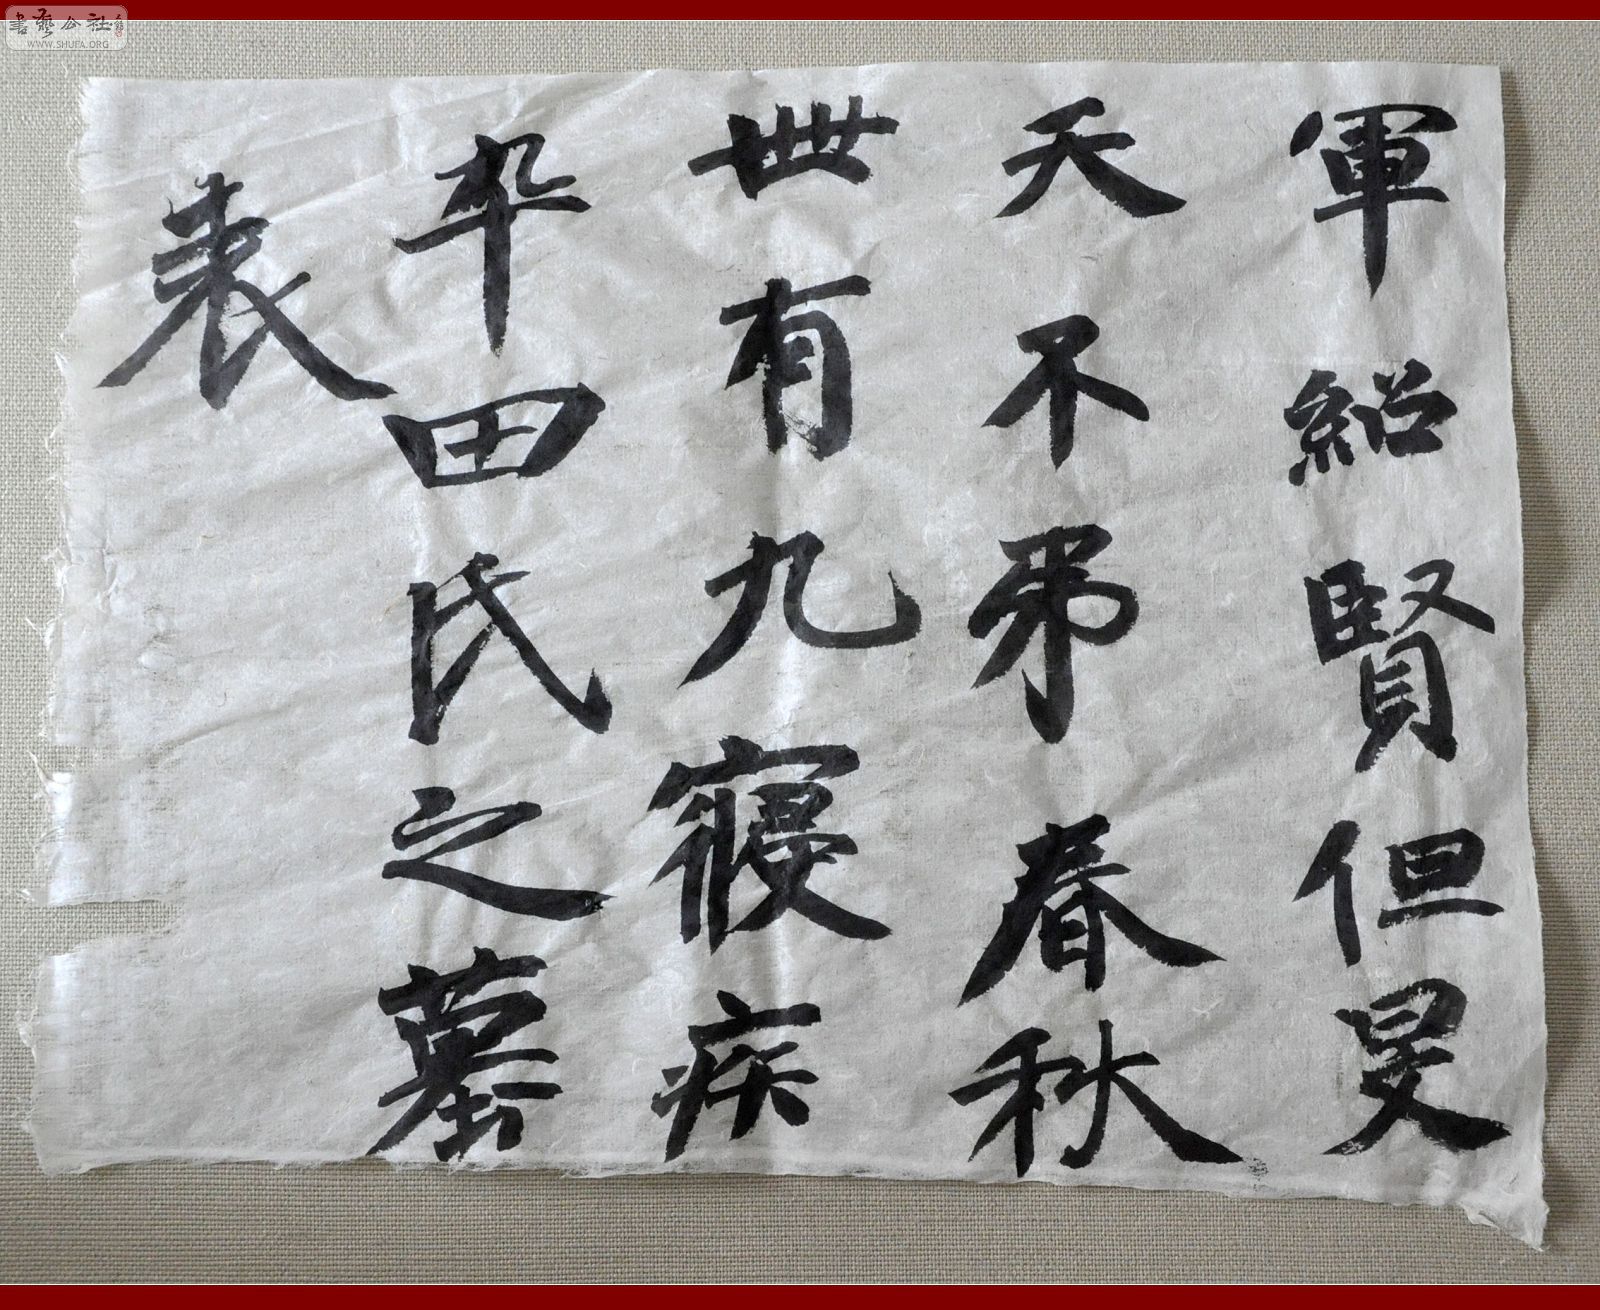 書藝公社
WWW.SHUFA.ORG
軍紹賢但旻
天不弔春秋
卌有九寢疾
卒田氏之墓
表